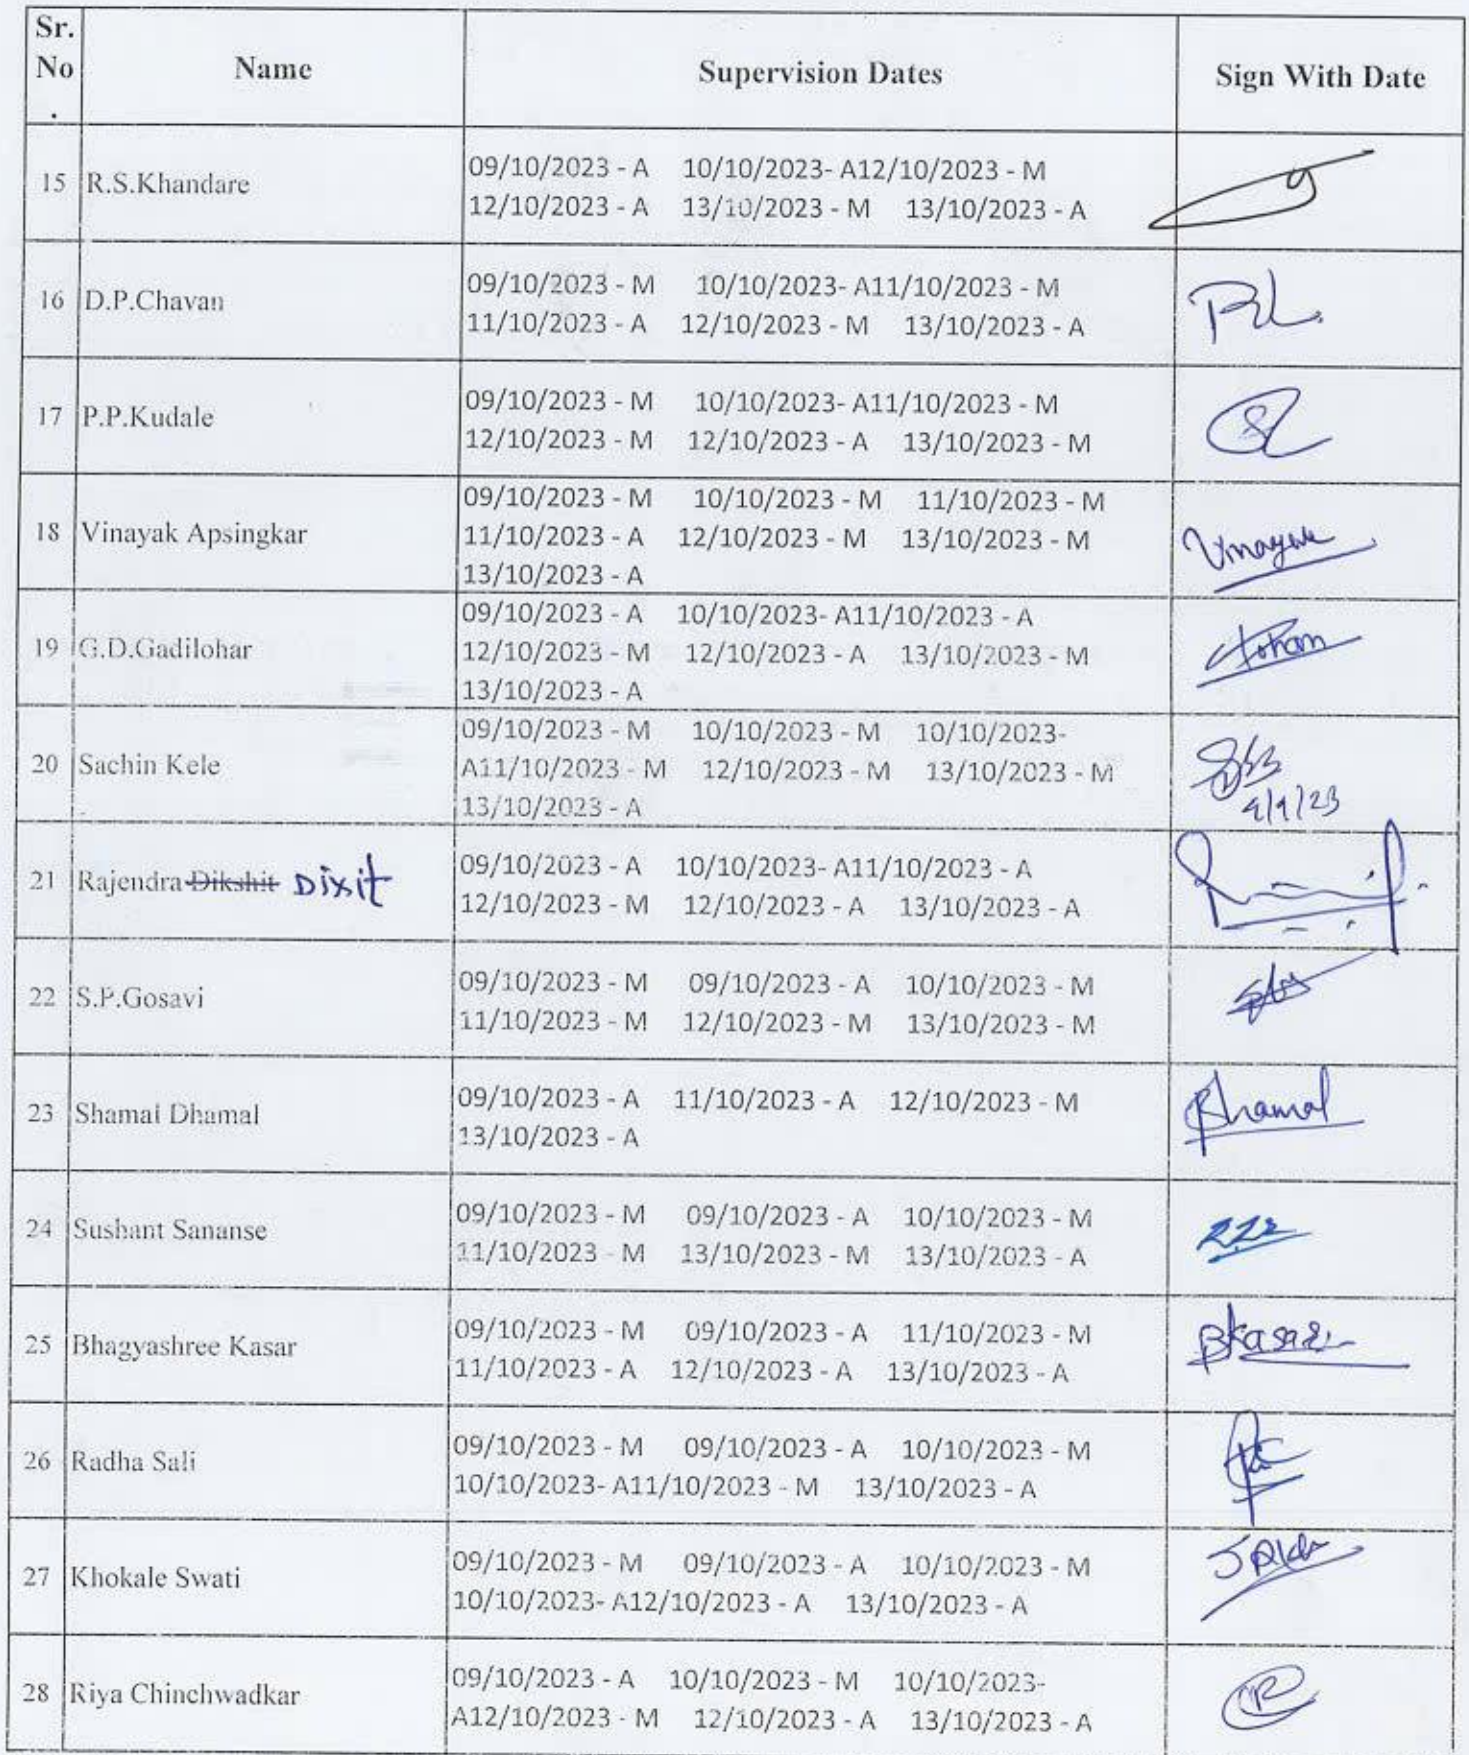 Sr. No . Name Supervision Dates Sign With Date
15 R.S.Khandare 09/10/2023 - A 10/10/2023- A12/10/2023 - M
12/10/2023 - A 13/10/2023 - M 13/10/2023 - A
16 D.P.Chavan 09/10/2023 - M 10/10/2023- A11/10/2023 - M
11/10/2023 - A 12/10/2023 - M 13/10/2023 - A
17 P.P.Kudale 09/10/2023 - M 10/10/2023- A11/10/2023 - M
12/10/2023 - M 12/10/2023 - A 13/10/2023 - M
18 Vinayak Apsingkar 09/10/2023 - M 10/10/2023 - M 11/10/2023 - M
11/10/2023 - A 12/10/2023 - M 13/10/2023 - M Vinayak
13/10/2023 - A
19 G.D.Gadilohar 09/10/2023 - A 10/10/2023- A11/10/2023 - A
12/10/2023 - M 12/10/2023 - A 13/10/2023 - M
13/10/2023 - A
20 Sachin Kele 09/10/2023 - M 10/10/2023 - M 10/10/2023-
A11/10/2023 - M 12/10/2023 - M 13/10/2023 - M
13/10/2023 - A
21 Rajendra Dikshit Dixit 09/10/2023 - A 10/10/2023- A11/10/2023 - A
12/10/2023 - M 12/10/2023 - A 13/10/2023 - A
22 S.P.Gosavi 09/10/2023 - M 09/10/2023 - A 10/10/2023 - M
11/10/2023 - M 12/10/2023 - M 13/10/2023 - M
23 Shamal Dhamal 09/10/2023 - A 11/10/2023 - A 12/10/2023 - M Dhamal
13/10/2023 - A
24 Sushant Sananse 09/10/2023 - M 09/10/2023 - A 10/10/2023 - M
11/10/2023 - M 13/10/2023 - M 13/10/2023 - A
25 Bhagyashree Kasar 09/10/2023 - M 09/10/2023 - A 11/10/2023 - M BKasar
11/10/2023 - A 12/10/2023 - A 13/10/2023 - A
26 Radha Sali 09/10/2023 - M 09/10/2023 - A 10/10/2023 - M
10/10/2023- A11/10/2023 - M 13/10/2023 - A
27 Khokale Swati 09/10/2023 - M 09/10/2023 - A 10/10/2023 - M
10/10/2023- A12/10/2023 - A 13/10/2023 - A
28 Riya Chinchwadkar 09/10/2023 - A 10/10/2023 - M 10/10/2023-
A12/10/2023 - M 12/10/2023 - A 13/10/2023 - A